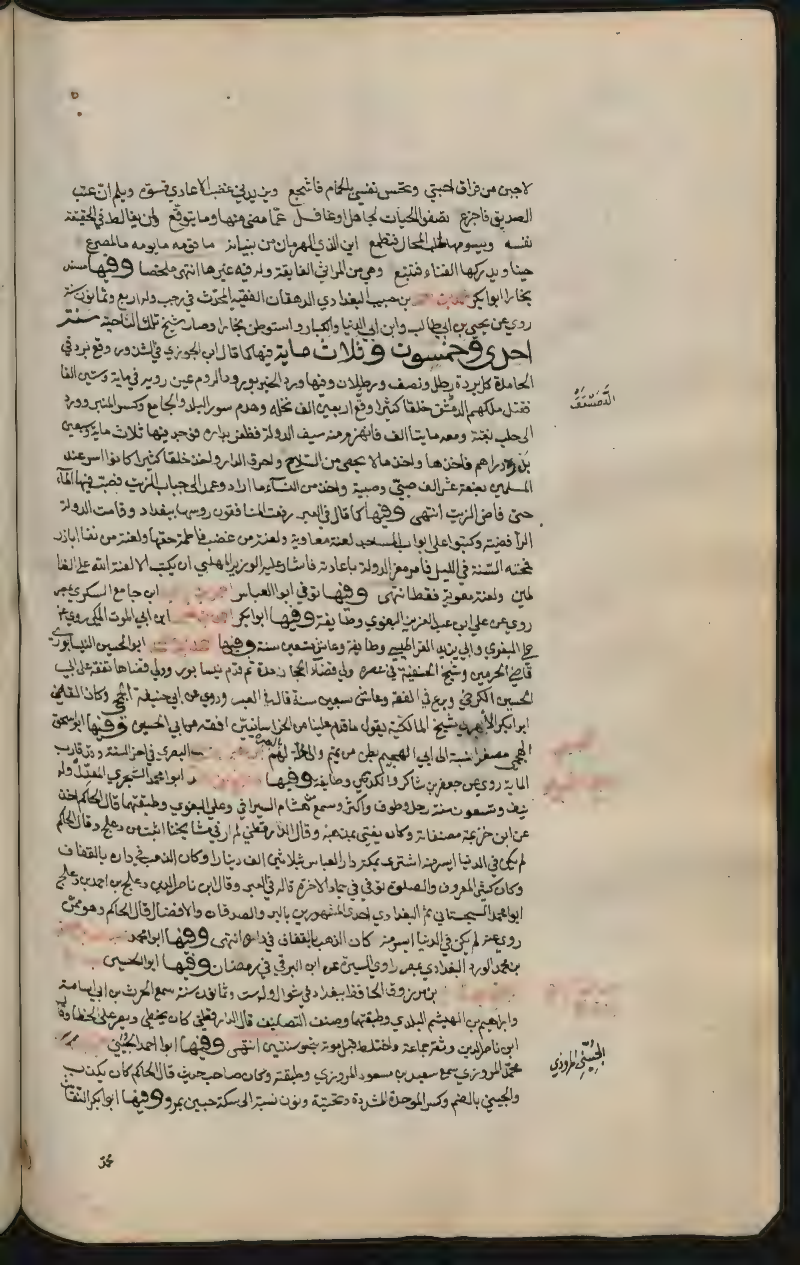 لاجبن من فراق احبتي وتحس نفسي بالحمام فاشجع ويزيدني غضب الاعادي قسوة ويلم ان عتب
الصديق فاجزع تصفو الحيات لجاهل او غافل عما مضى منها وما يتوقع ولمن يغالط في الحقيقة
نفسه ويسومها طلب المحال فتطمع اين الذي الهرمان من بنيانه ما قومه ما يومه ما المصرع
حينا ويدركها الفناء فتتبع وهي من المراثي الفايقة وله فيه غيرها انتهى ملخصا وفيها مسند
بخارا ابو بكر بن حبيب البغدادي الدهقان الفقيه المحدث في رجب وله اربع وثمانون سنة
روى عن يحيى بن ابي طالب وابن ابي الدنيا والكبار واستوطن بخارا وصار شيخ تلك الناحية سنة
احدى وخمسون وثلاث ماية فيها كما قال ابن الجوزي في الشذور وقع برد في
الحامدة كل بردة رطل ونصف ورطلان وفيها ورد الخبر بورود الروم عين زربة في ماية وستين الفا
فقتل ملكهم الدمستق خلقا كثيرا وقع اربعين الف نخله وهدم سور البلد والجامع وكسر المنبر وورد
الى حلب بغتة ومعه مايتا الف فانهزم منه سيف الدولة فظفر بداره فوجد فيها ثلاث ماية وتسعين
بدرة دراهم فاخذها واخذ مالا يحصى من السلاح واحرق الدار واخذ خلقا كثيرا كانوا اسر عند
المسلمين بضعة عشر الف صبي وصبية واخذ من النساء ما اراد وعمد الى جباب الزيت فصب فيها الماء
حتى فاض الزيت انتهى وفيها كما قال في العبر رفعت المنافقون روسها ببغداد وقامت الدولة
الرافضية وكتبوا على ابواب المسجد لعنة معاوية ولعنة من غضب فاطمة حقها ولعنة من نفا اباذر
فمحته السنة في الليل فامر معز الدولة باعادته فاشار عليه الوزير المهلبي ان يكتب الا لعنة الله على الظا
لمين ولعنة معوية فقط انتهى وفيها توفي ابو العباس ابن جامع السكري بمصر
روى عن علي ابن عبد العزيز البغوي وطايفة وفيها ابو بكر ابن ابي الموت المكي روى عن
علي البغوي وابي يزيد القراطيسي وطايفة وعاش تسعين سنة وفيها ابو الحسين النيسابوري
قاضي الحرمين وشيخ الحنفية في عصره ولي قضاء الحجاز مدة ثم قدم نيسابور وولي قضاها تفقه على ابي
الحسين الكرخي وبرع في الفقه وعاش سبعين سنة قاله في العبر وروى عن ابي خليفة الجمحي وكان القاضي
ابو بكر الابهري شيخ المالكية يقول ما قدم علينا من الخراسانيين افقه من ابي الحسين وفيها ابو اسحق
الهجيمي مصغرا نسبة الى ابي الهجيم بطن من تميم والمحلة لهم بالبصرة البصري في اخر السنة وقد قارب
الماية روى عن جعفر بن شاكر والكديمي وطايفة وفيها ابو محمد السجزي المعدل وله
نيف وتسعون سنة رحل وطوف واكثر وسمع هشام السيرافي وعلي البغوي وطبقتهما قال الحاكم اخذ
عن ابن خزيمة مصنفاته وكان يفتي بمذهبه وقال الدارقطني لم ار في مشايخنا اثبت من دعلج وقال الحاكم
لم يكن في الدنيا ايسر منه اشترى بمكة دار العباس بثلاثين الف دينار وكان الذهب في داره بالقفاف
وكان كثير المعروف والصلوة توفي في جماد الاخرة قاله في العبر وقال ابن ناصر الدين دعلج بن احمد بن دعلج
ابو محمد السجستاني ثم البغدادي احد المشهورين بالبر والصدقات والافضال قال الحاكم وهو ممن
روى عنه لم يكن في الدنيا ايسر منه كان الذهب بالقفاف في داره انتهى وفيها ابو محمد
بن محمد الورد البغدادي بمصر راوي السيرة عن ابن البرقي في رمضان وفيها ابو الحسين
بن مرزوق الحافظ ببغداد في شوال وله ست وثمانون سنة سمع الحرث بن ابي اسامة
وابراهيم بن الهيثم البلدي وطبقتهما وصنف التصانيف قال الدارقطني كان يخطي ويصر على الخطا وقا
ابن ناصر الدين وثقه جماعة واختلط قبل موته بنحو سنتين انتهى وفيها ابو احمد الحبيبي
محمد المروزي سمع سعيد بن مسعود المروزي وطبقته وكان صاحب حديث قال الحاكم كان يكذب
والحبيبي بالضم وكسر الموحدة المشددة وتحتية ونون نسبة الى سكة حبين بمرو وفيها ابو بكر النقاش
محمد
الدمستق
الحبيني المروزي